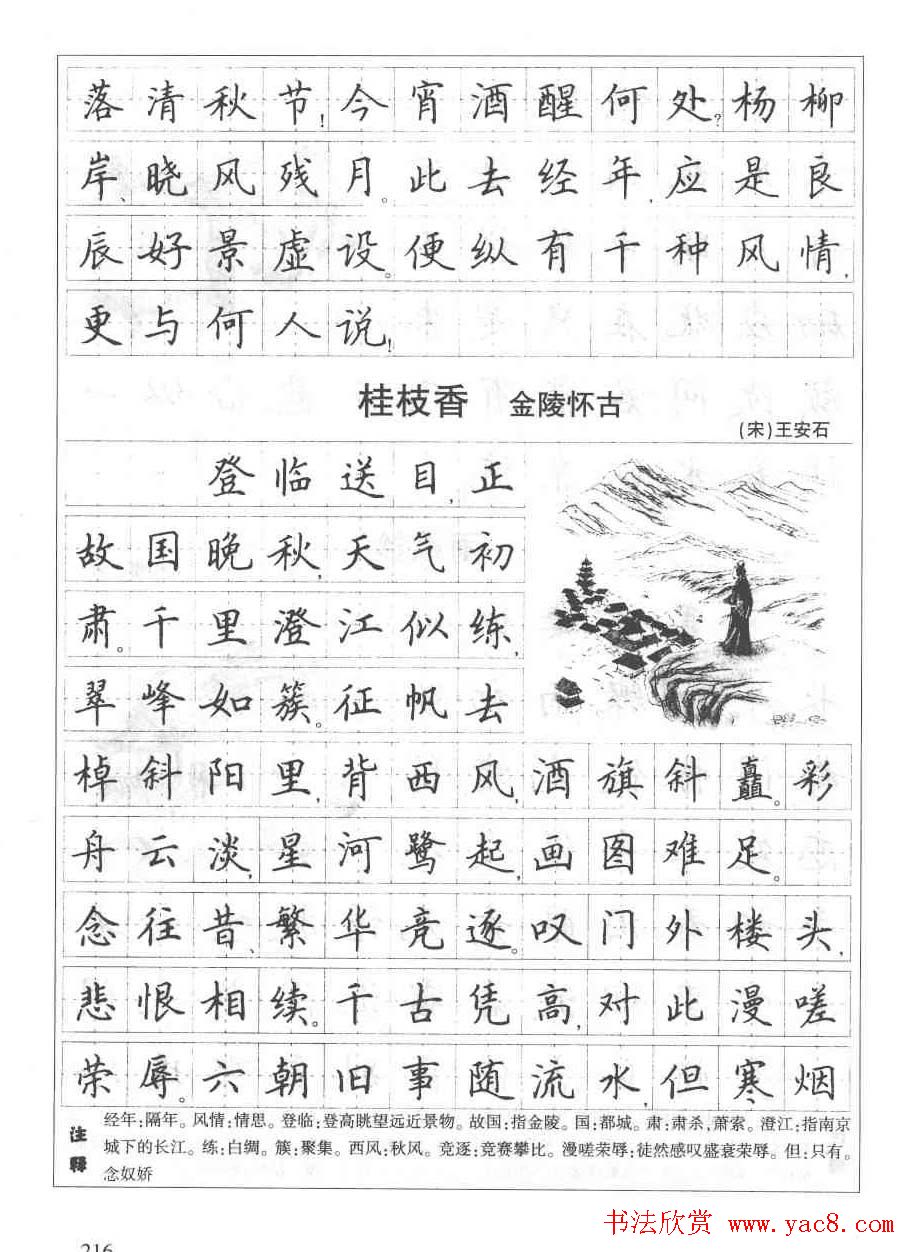 落清秋节!今宵酒醒何处?杨柳
岸、晓风残月。此去经年,应是良
辰好景虚设。便纵有千种风情,
更与何人说!
桂枝香 金陵怀古
(宋)王安石
登临送目,正
故国晚秋,天气初
肃。千里澄江似练,
翠峰如簇。征帆去
棹斜阳里,背西风,酒旗斜矗。彩
舟云淡,星河鹭起,画图难足。
念往昔、繁华竞逐。叹门外楼头,
悲恨相续。千古凭高,对此漫嗟
荣辱。六朝旧事随流水,但寒烟
注释
经年:隔年。风情:情思。登临:登高眺望远近景物。故国:指金陵。国:都城。肃:肃杀,萧索。澄江:指南京
城下的长江。练:白绸。簇:聚集。西风:秋风。竞逐:竞赛攀比。漫嗟荣辱:徒然感叹盛衰荣辱。但:只有。
念奴娇
书法欣赏 www.yac8.com
216